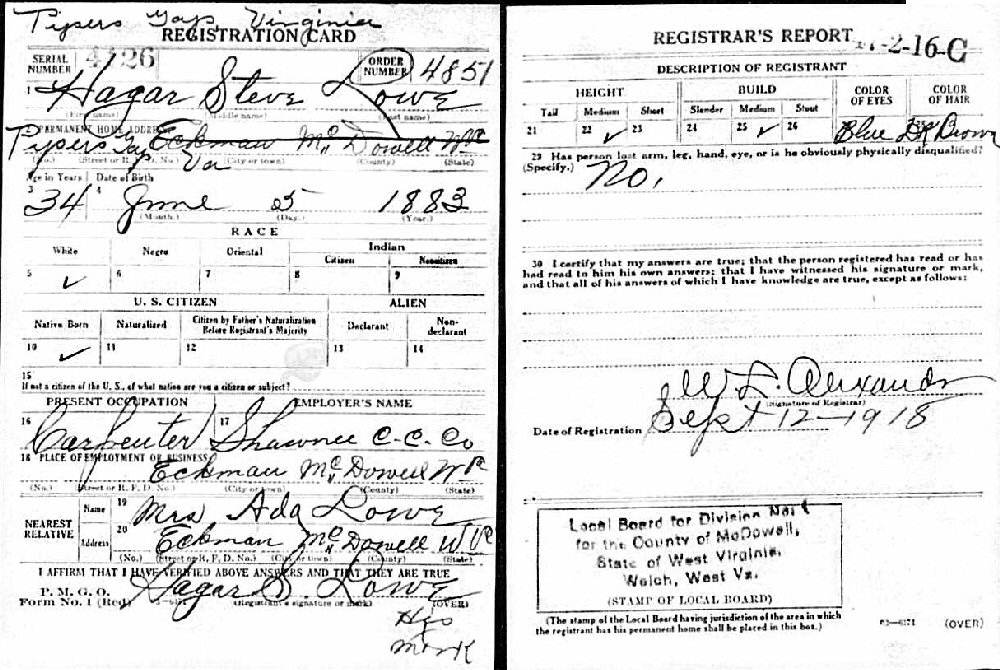 Tipers Gap, Virginia
REGISTRATION CARD
SERIAL NUMBER 4726 ORDER NUMBER 4851
1 Hagar Steve Lowe
(First name) (Middle name) (Last name)
2 PERMANENT HOME ADDRESS
Tipers Gap Va Eckman McDowell W Va
(No.) (Street or R. F. D. No.) (City or town) (County) (State)
Age in Years Date of Birth
3 34 4 June 5 1883
(Month.) (Day.) (Year.)
RACE
White Negro Oriental Indian
Citizen Noncitizen
5 ✓ 6 7 8 9
U. S. CITIZEN ALIEN
Native Born Naturalized Citizen by Father's Naturalization Before Registrant's Majority Declarant Non-declarant
10 ✓ 11 12 13 14
15
If not a citizen of the U. S., of what nation are you a citizen or subject?
PRESENT OCCUPATION EMPLOYER'S NAME
16 Carpenter 17 Shawnee C. C. Co
18 PLACE OF EMPLOYMENT OR BUSINESS
Eckman McDowell W Va
(No.) (Street or R. F. D. No.) (City or town) (County) (State)
NEAREST RELATIVE Name 19 Mrs Ada Lowe
Address 20 Eckman McDowell W Va
(No.) (Street or R. F. D. No.) (City or town) (County) (State)
I AFFIRM THAT I HAVE VERIFIED ABOVE ANSWERS AND THAT THEY ARE TRUE
P. M. G. O.
Form No. 1 (Red) Hagar S. Lowe
(Registrant's signature or mark) (OVER)
His
mark
REGISTRAR'S REPORT
-2-16-C
DESCRIPTION OF REGISTRANT
HEIGHT BUILD COLOR OF EYES COLOR OF HAIR
Tall Medium Short Slender Medium Stout
21 22 ✓ 23 24 25 ✓ 26 Blue Dk Brown
29 Has person lost arm, leg, hand, eye, or is he obviously physically disqualified?
(Specify.) No.
30 I certify that my answers are true; that the person registered has read or has
had read to him his own answers; that I have witnessed his signature or mark,
and that all of his answers of which I have knowledge are true, except as follows:
W L. Alexander
(Signature of Registrar)
Date of Registration Sept 12-1918
Local Board for Division No. 1
for the County of McDowell,
State of West Virginia,
Welch, West Va.
(STAMP OF LOCAL BOARD)
(The stamp of the Local Board having jurisdiction of the area in which
the registrant has his permanent home shall be placed in this box.)
(OVER)